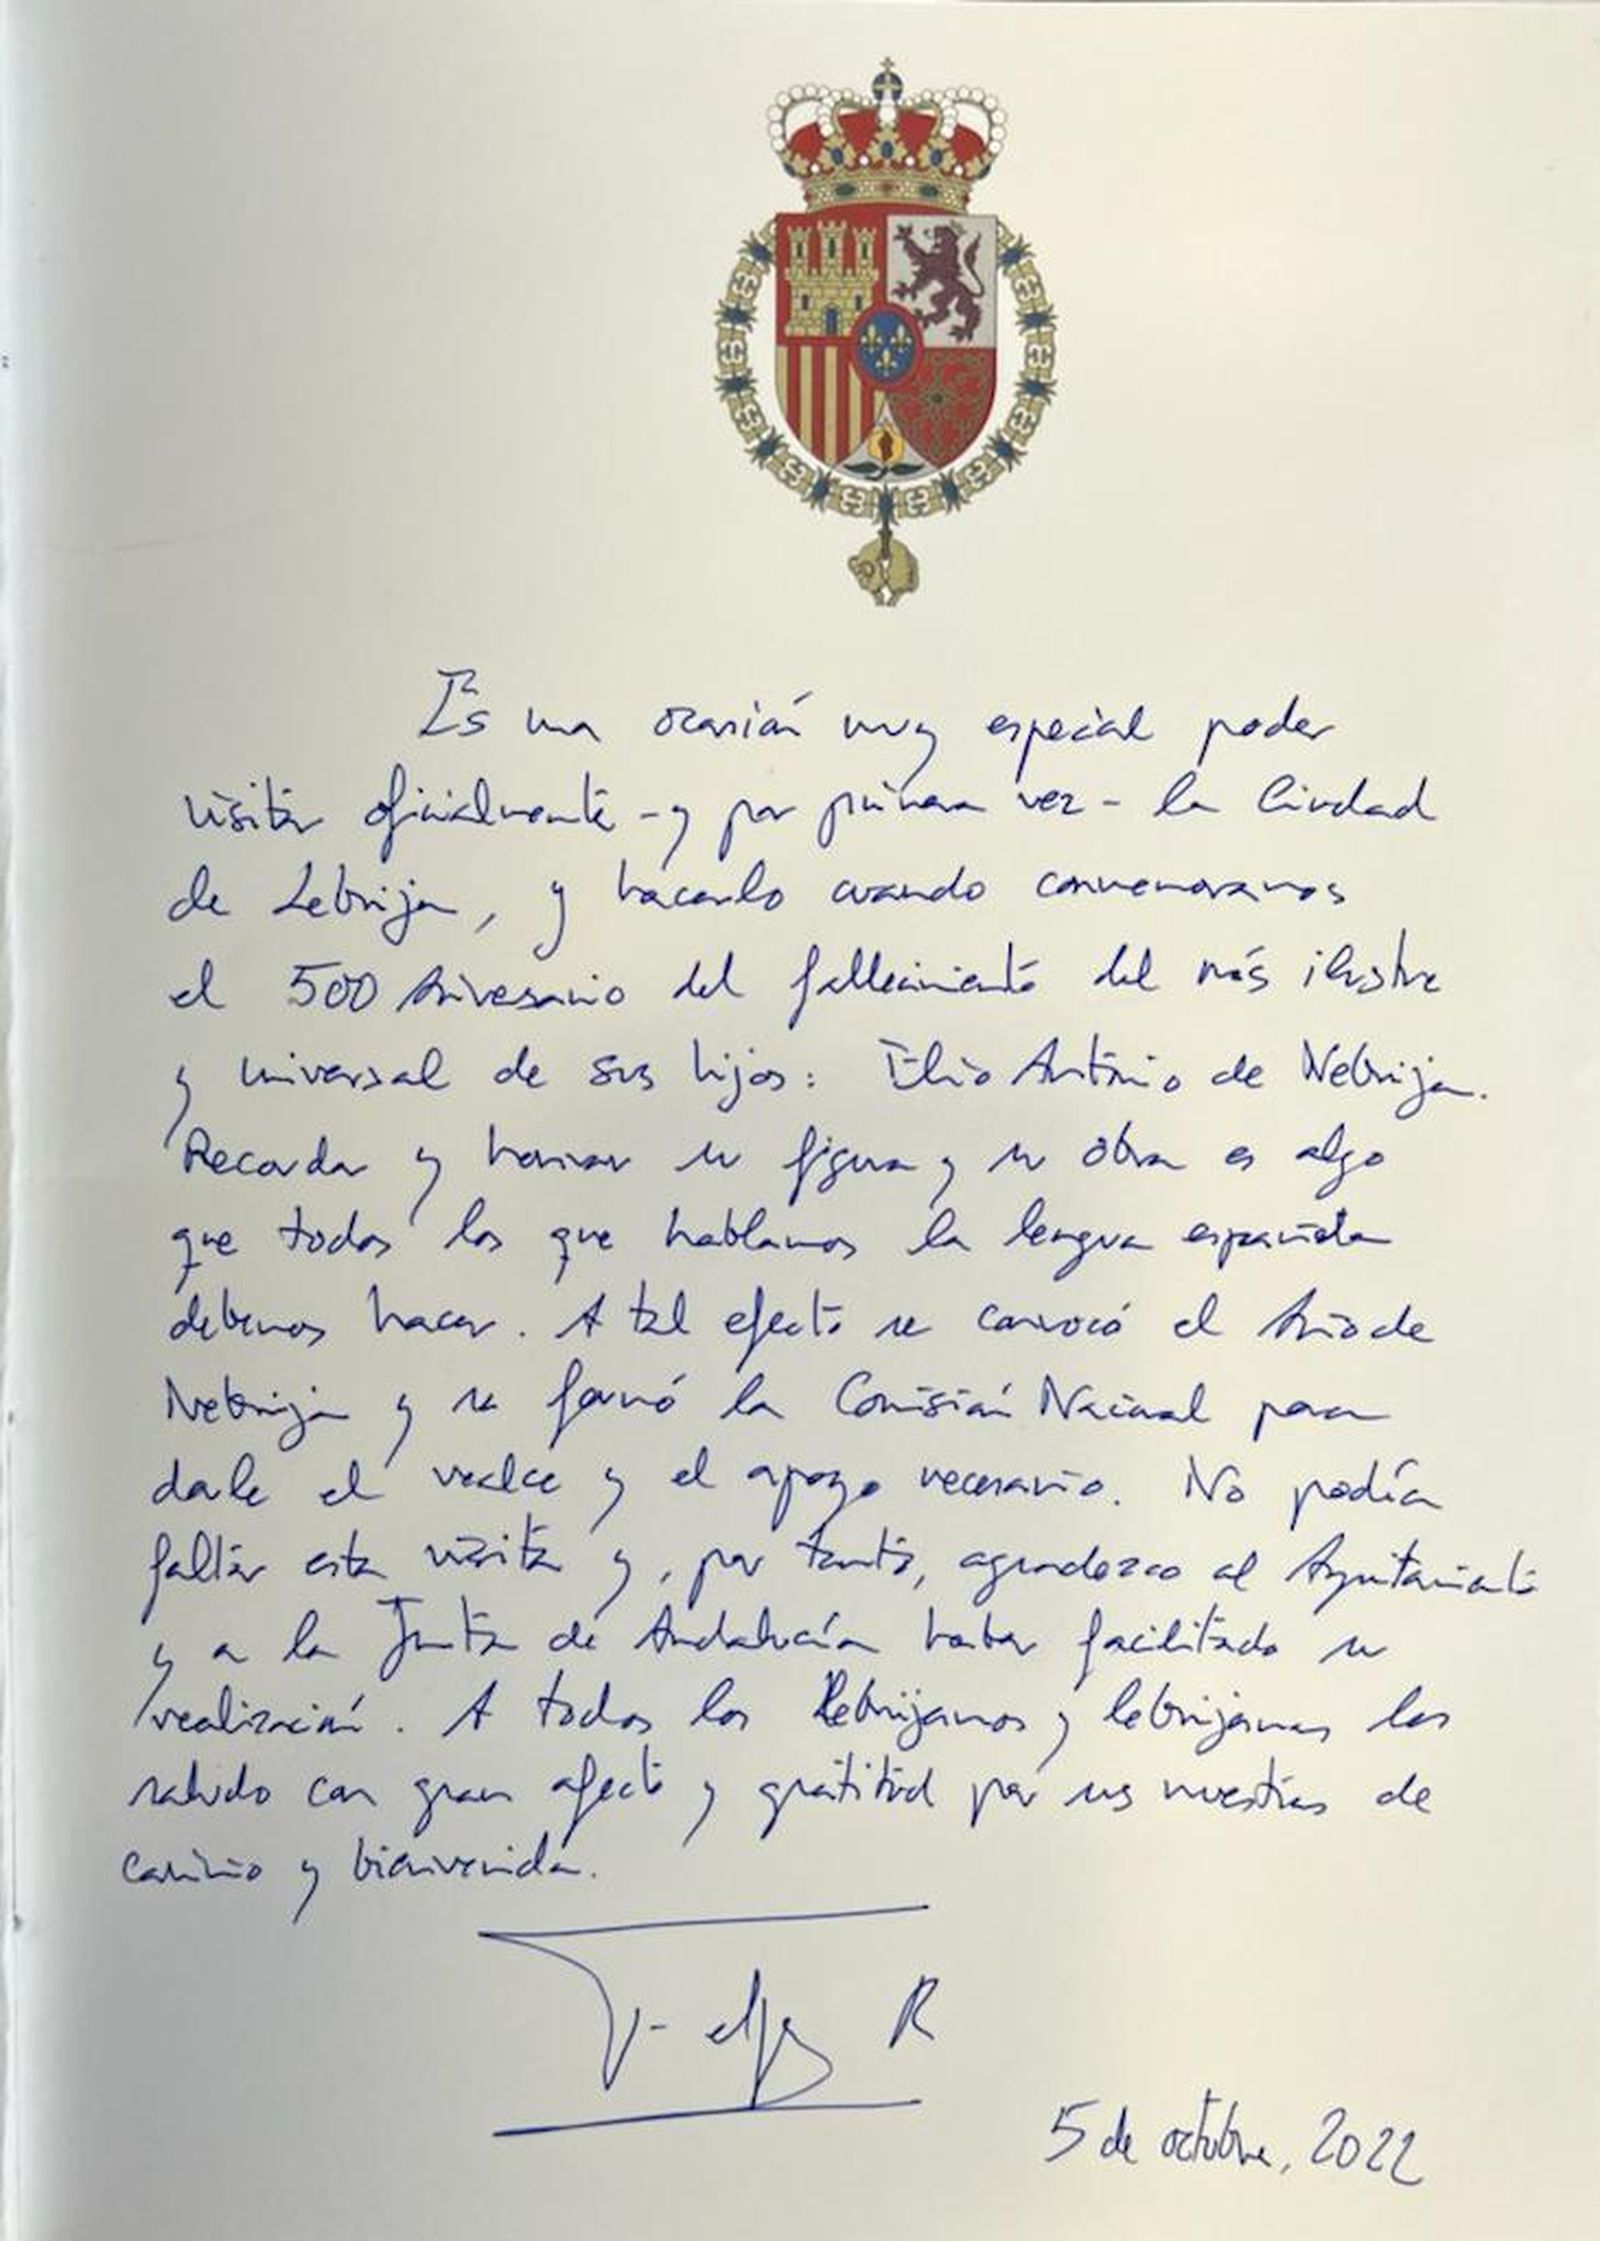 Es una ocasión muy especial poder
visitar oficialmente -y por primera vez- la Ciudad
de Lebrija, y hacerlo cuando conmemoramos
el 500 Aniversario del fallecimiento del más ilustre
y universal de sus hijos: Elio Antonio de Nebrija.
Recordar y honrar su figura y su obra es algo
que todos los que hablamos la lengua española
debemos hacer. A tal efecto se convocó el Año de
Nebrija y se formó la Comisión Nacional para
darle el realce y el apoyo necesario. No podía
faltar esta visita y, por tanto, agradezco al Ayuntamiento
y a la Junta de Andalucía haber facilitado su
realización. A todos los Lebrijanos y lebrijanas les
saludo con gran afecto y gratitud por sus muestras de
cariño y bienvenida.
Felipe R
5 de octubre, 2022